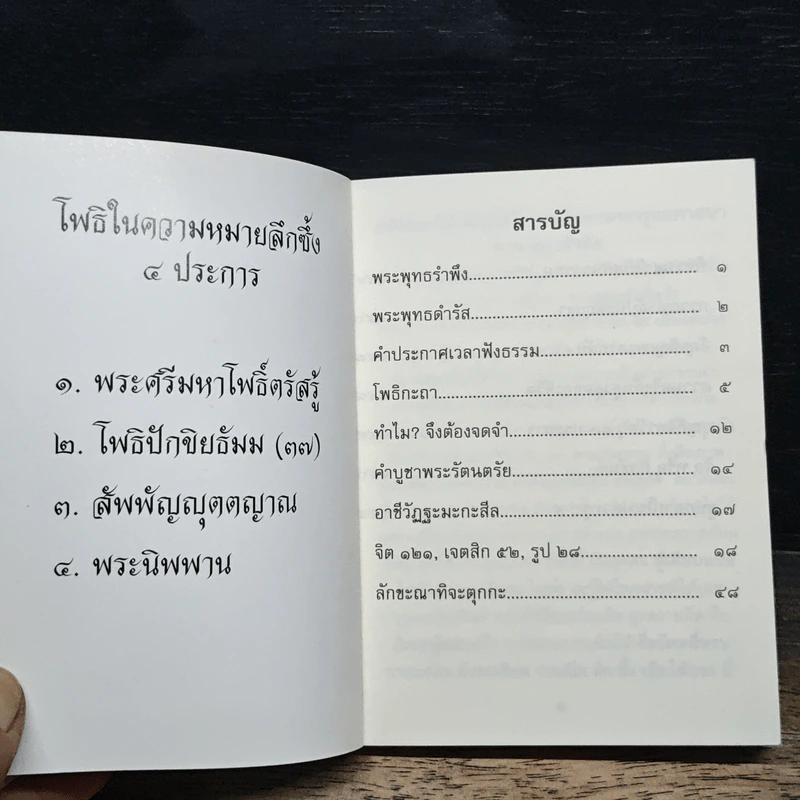 โพธิในความหมายลึกซึ้ง
๔ ประการ
๑. พระศรีมหาโพธิ์ตรัสรู้
๒. โพธิปักขิยธัมม (๓๗)
๓. สัพพัญญุตตญาณ
๔. พระนิพพาน
สารบัญ
พระพุทธรำพึง........................................ ๑
พระพุทธดำรัส........................................ ๒
คำประกาศเวลาฟังธรรม.......................... ๓
โพธิกะถา............................................. ๕
ทำไม? จึงต้องจดจำ................................ ๑๒
คำบูชาพระรัตนตรัย................................ ๑๔
อาชีวัฏฐะมะกะสีล.................................. ๑๗
จิต ๑๒๑, เจตสิก ๕๒, รูป ๒๘.................... ๑๘
ลักขะณาทิจะตุกกะ................................. ๔๘